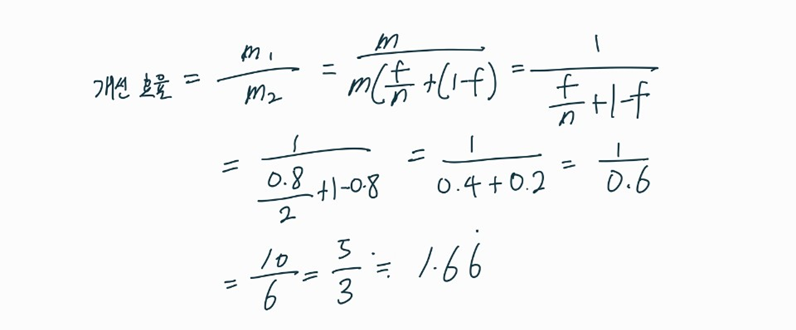 개선 효율 = m₁/m₂ = m/(m(f/n +(1-f)) = 1/(f/n +1-f)
= 1/(0.8/2 +1-0.8) = 1/(0.4+0.2) = 1/0.6
= 10/6 = 5/3 ≒ 1.66̇